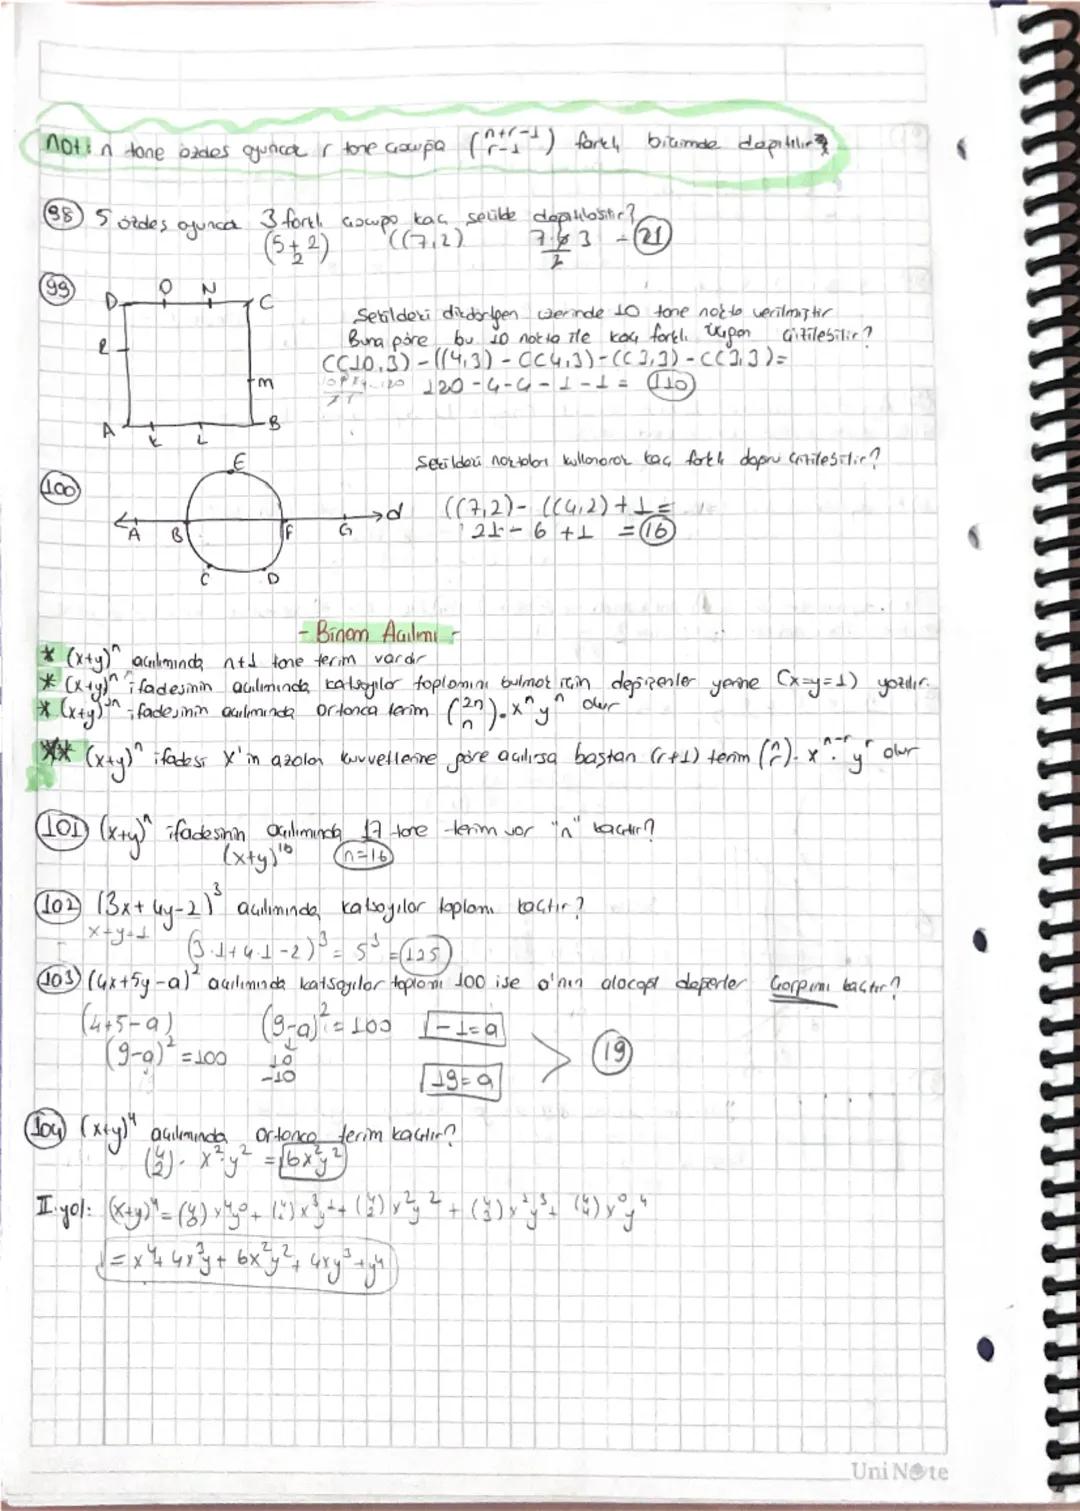 not: n tane özdeş oyuncak r tane çocuğa (n+r-1 r-1) farklı biçimde dağıtılır
98 5 özdeş oyuncak 3 farklı çocuğa kaç şekilde dağıtılabilir?
(5+2 2) C(7,2) 7.6 3 = 21
2
99
D O N C
R
m
A K L B
Şekildeki dikdörtgen üzerinde 10 tane nokta verilmiştir
Buna göre bu 10 nokta ile kaç farklı üçgen çizilebilir?
C(10,3) - C(4,3) - C(4,3) - C(3,3) - C(3,3) =
120 - 4 - 4 - 1 - 1 = 110
100
E
A B F G d
C D
Şekildeki noktaları kullanarak kaç farklı doğru çizilebilir?
C(7,2) - C(4,2) + 1 =
21 - 6 + 1 = 16
- Binom Açılımı -
* (x+y)ⁿ açılımında n+1 tane terim vardır
* (x+y)ⁿ ifadesinin açılımında katsayılar toplamını bulmak için değişenler yerine (x=y=1) yazılır.
* (x+y)²ⁿ ifadesinin açılımında ortanca terim (2n n).xⁿyⁿ olur
** (x+y)ⁿ ifadesi x'in azalan kuvvetlerine göre açılırsa baştan (r+1) terim (n r).xⁿ⁻ʳ.yʳ olur
101 (x+y)ⁿ ifadesinin açılımında 17 tane terim var "n" kaçtır?
(x+y)¹⁶ n=16
102 (3x+4y-2)³ açılımında katsayılar toplamı kaçtır?
x=y=1
(3.1+4.1-2)³ = 5³ = 125
103 (4x+5y-a)² açılımında katsayılar toplamı 100 ise a'nın alacağı değerler çarpımı kaçtır?
(4+5-a) (9-a)² = 100 -1=a
(9-a)² = 100 10
-10 19=a
19
104 (x+y)⁴ açılımında ortanca terim kaçtır?
(4 2). x².y² = 6x²y²
II.yol: (x+y)⁴ = (4 0) x⁴y⁰ + (4 1) x³y¹ + (4 2) x²y² + (4 3) x¹y³ + (4 4) x⁰y⁴
= x⁴ + 4x³y + 6x²y² + 4xy³ + y⁴
UniNote